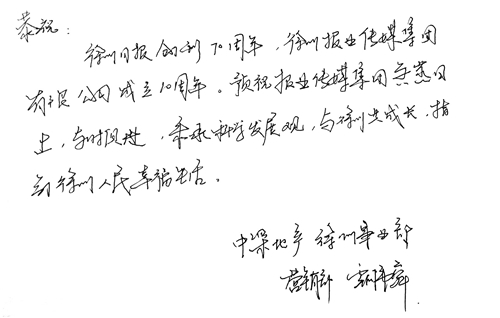 恭祝：
徐州日报创刊70周年，徐州报业传媒集团
有限公司成立10周年。预祝报业传媒集团蒸蒸日
上，与时俱进，秉承科学发展观，与徐州共成长，指
引徐州人民幸福生活。
中梁地产徐州事业部